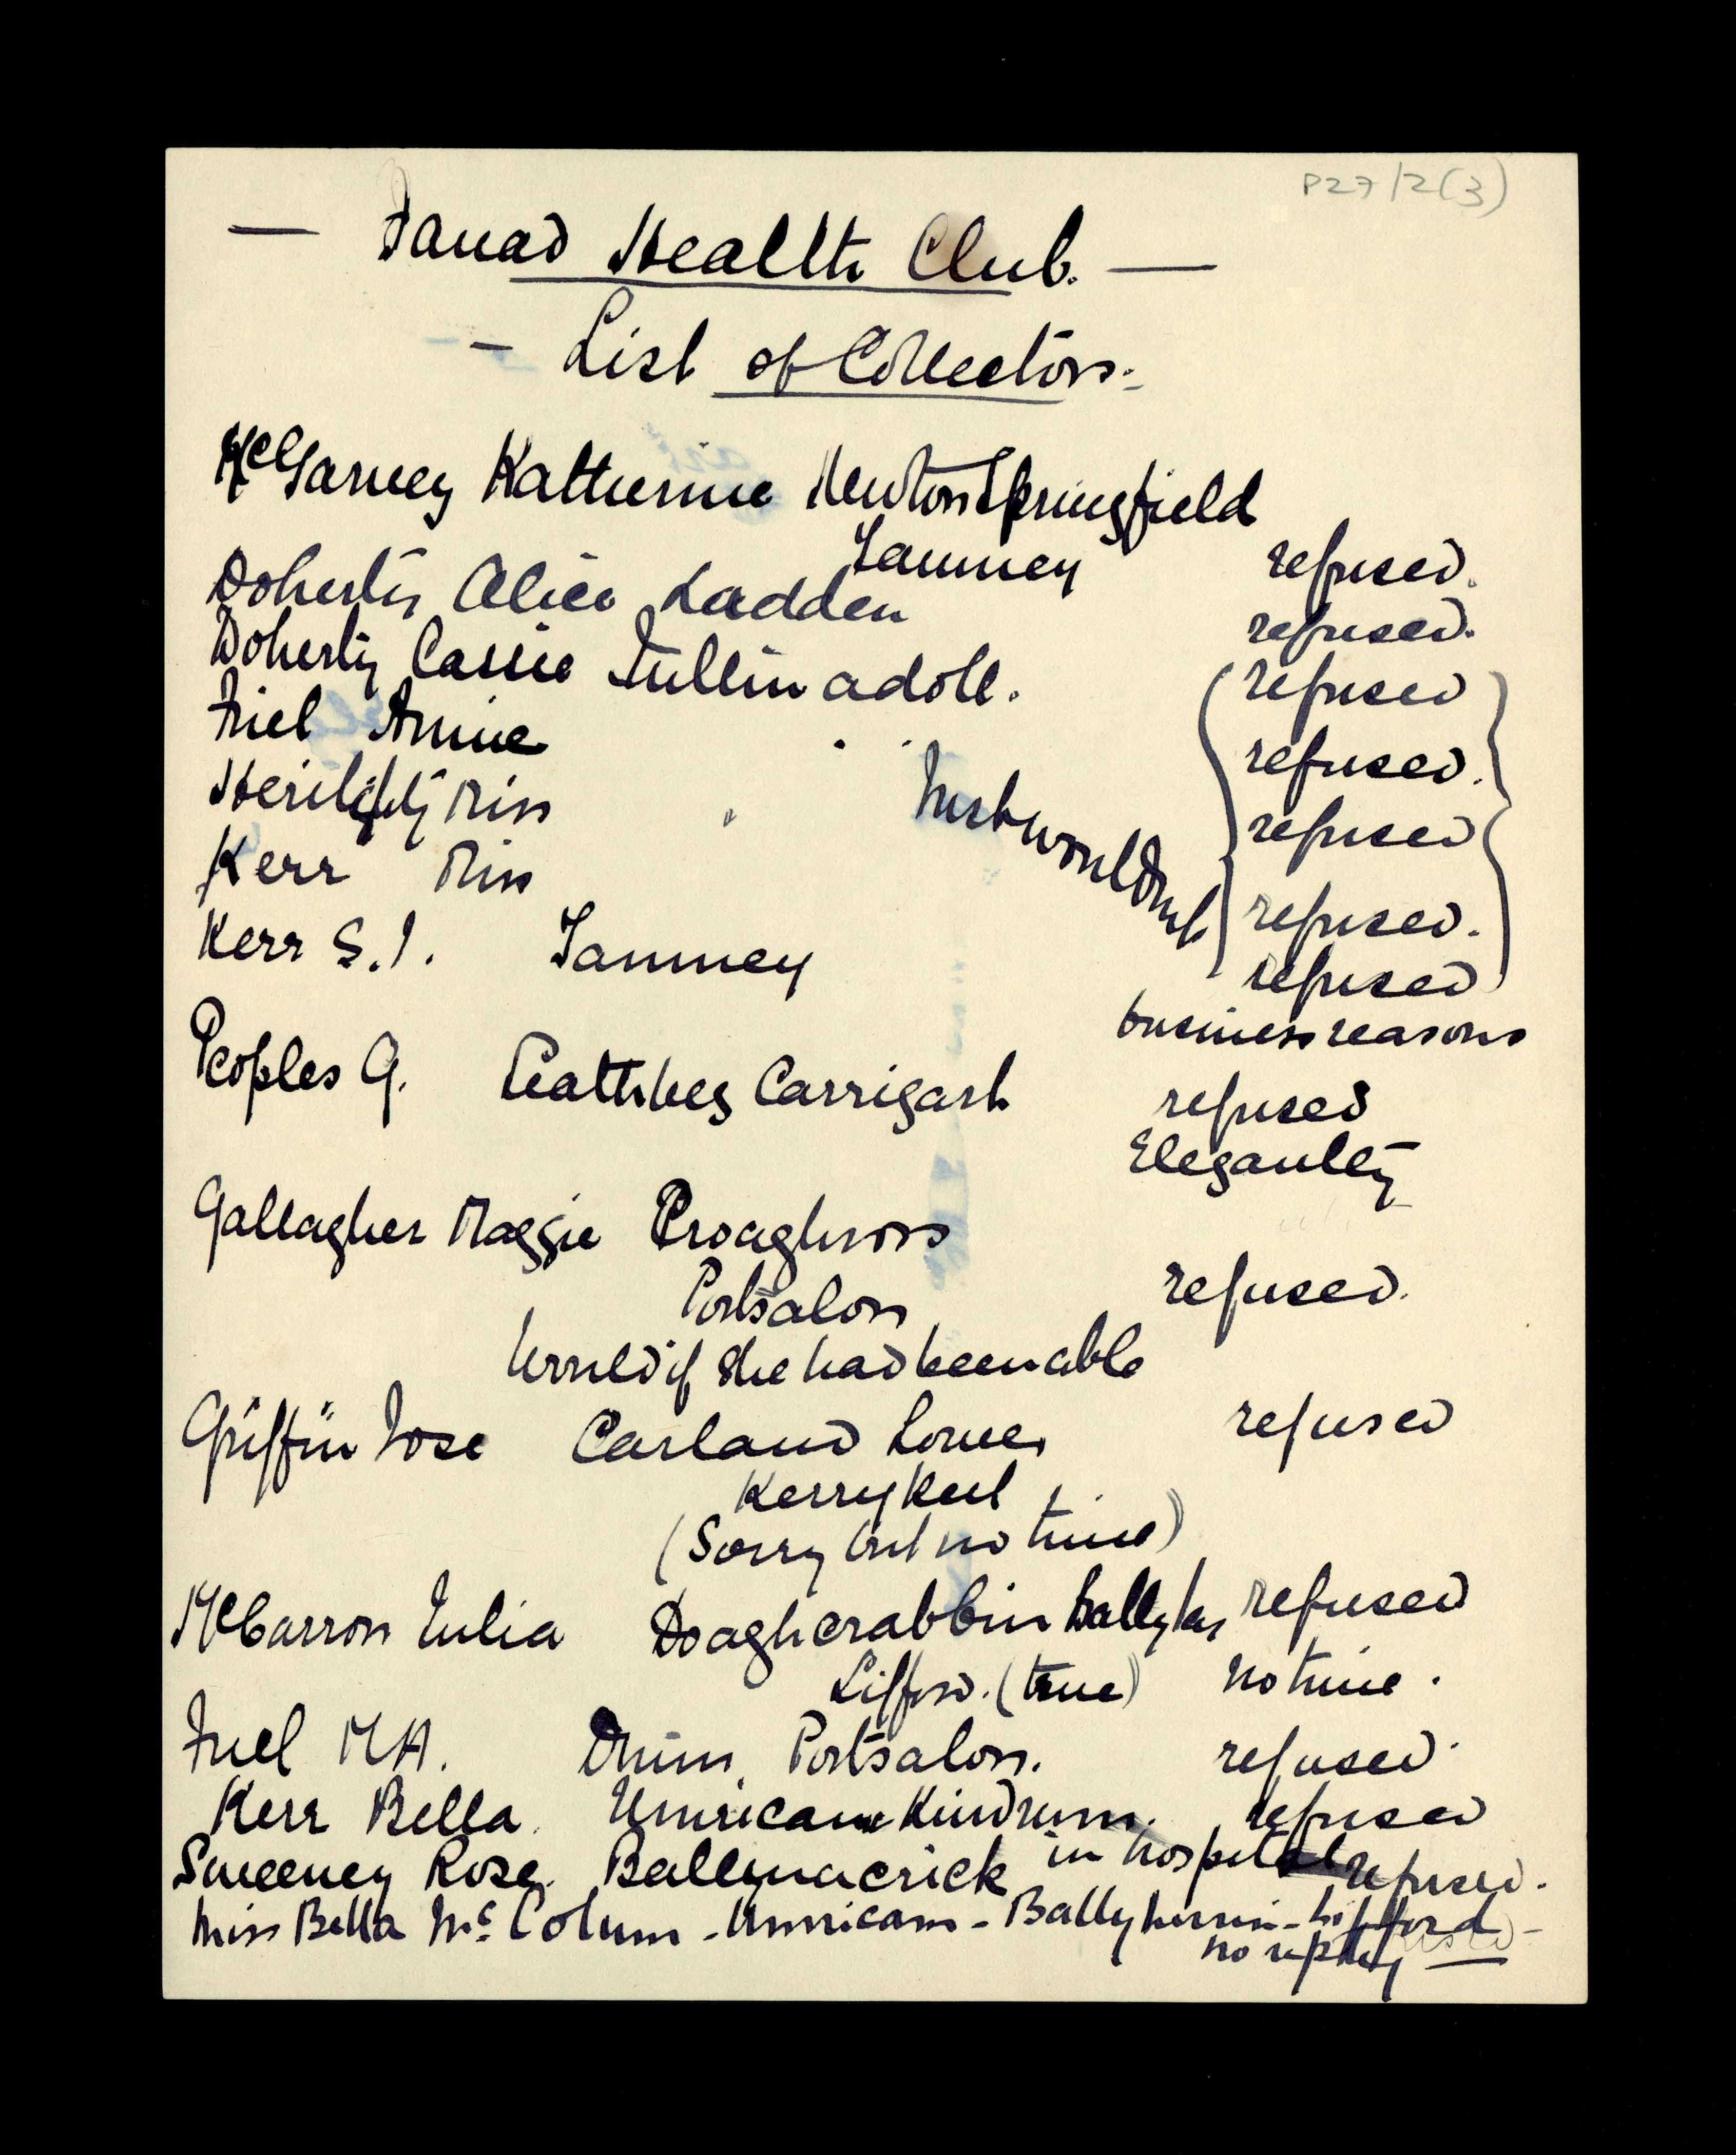 P27/2(3)
— Fanad Health Club. —
- List of Collectors.-
McGarvey Katherine Newton Springfield
Tamney refused.
Doherty Alice Ladden refused.
Doherty Cassie Tullinadoll. refused
Friel Annie " refused.
Heiligthy Miss " refused
Just wouldnt
Kerr Miss refused.
Kerr S.J. Tamney refused
business reasons
Peoples G. Carrigart refused
Elegantly
Gallagher Maggie Croaghross
Portsalon refused.
Would if she had been able
Griffin Rose Carland Lower refused
Kerrykeel
(Sorry but no time)
McCarron Julia Doaghcrabbin Ballyher refused
Lifford. (true) no time.
Friel M A. Drim Portsalon. refused.
Kerr Bella. Umricam Kindrum. refused
Sweeney Rose. Ballymacrick in hospital refused.
Miss Bella McColum - Umricam - Ballyherrin - Lifford -
no reply